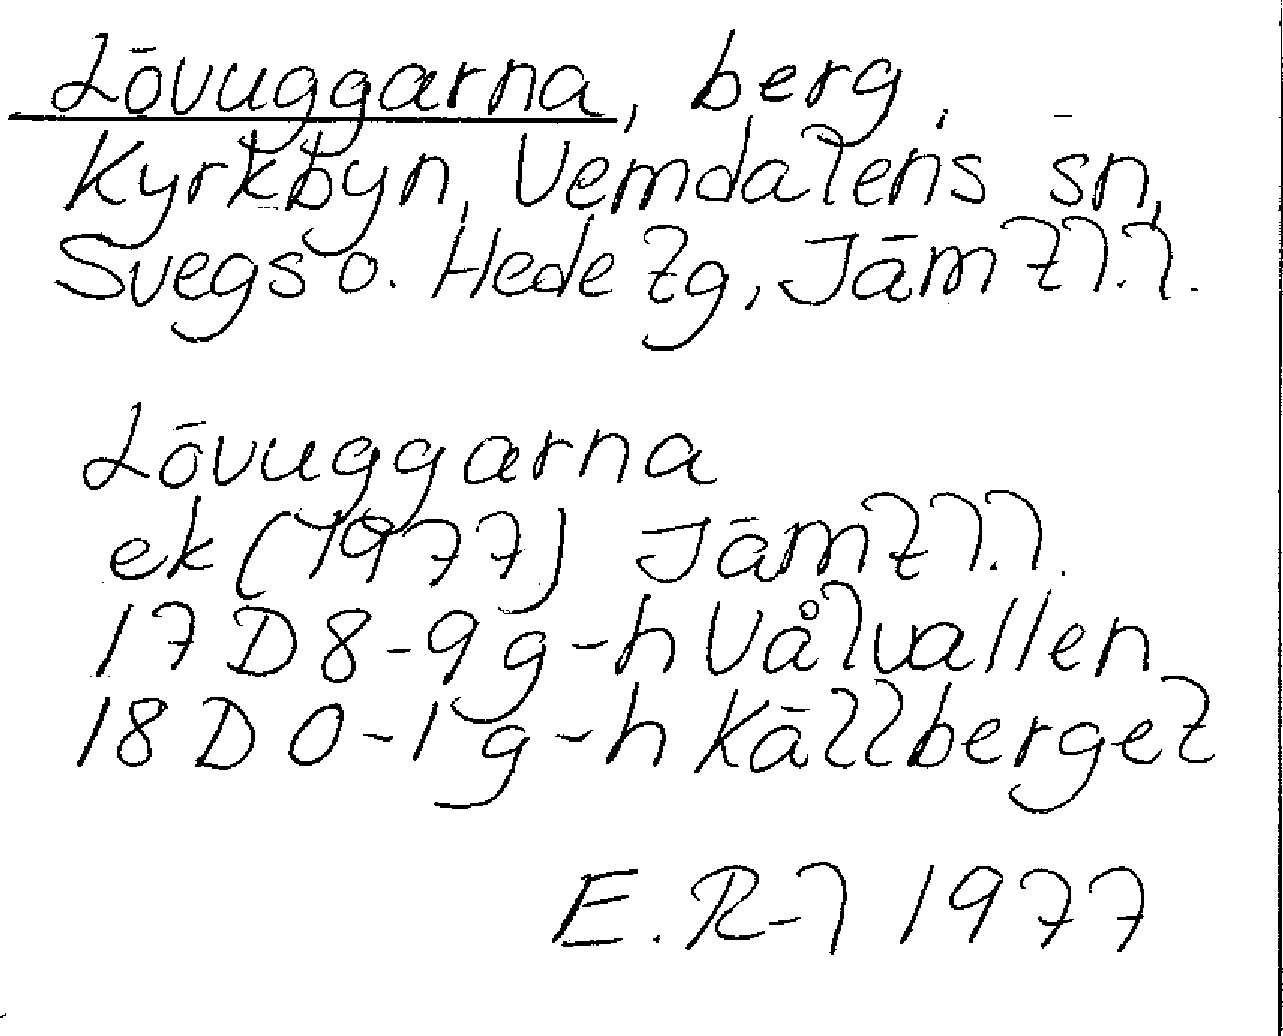 Lövuggarna, berg,
Kyrkbyn, Vemdalens sn,
Svegs o. Hede tg, Jämtl.l.
Lövuggarna
ek (1977) Jämtl.l.
17 D 8-9 g-h Vålvallen
18 D 0-1 g-h Källberget
E. R-l 1977